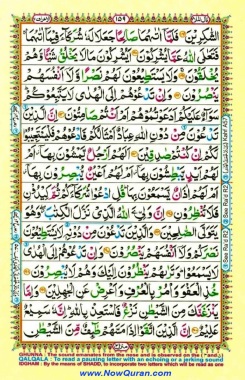 ۱۵۹
الشّٰكِرِيْنَ ۝ فَلَمَّآ اٰتٰىهُمَا صَالِحًا جَعَلَا لَهٗ شُرَكَآءَ فِيْمَآ اٰتٰىهُمَا
فَتَعٰلَى اللّٰهُ عَمَّا يُشْرِكُوْنَ ۝ اَيُشْرِكُوْنَ مَا لَا يَخْلُقُ شَيْئًا وَّهُمْ
يُخْلَقُوْنَ ۝ وَلَا يَسْتَطِيْعُوْنَ لَهُمْ نَصْرًا وَّلَآ اَنْفُسَهُمْ
يَنْصُرُوْنَ ۝ وَاِنْ تَدْعُوْهُمْ اِلَى الْهُدٰى لَا يَتَّبِعُوْكُمْ
سَوَآءٌ عَلَيْكُمْ اَدَعَوْتُمُوْهُمْ اَمْ اَنْتُمْ صَامِتُوْنَ ۝ اِنَّ الَّذِيْنَ
تَدْعُوْنَ مِنْ دُوْنِ اللّٰهِ عِبَادٌ اَمْثَالُكُمْ فَادْعُوْهُمْ فَلْيَسْتَجِيْبُوْا
لَكُمْ اِنْ كُنْتُمْ صٰدِقِيْنَ ۝ اَلَهُمْ اَرْجُلٌ يَّمْشُوْنَ بِهَآ اَمْ
لَهُمْ اَيْدٍ يَّبْطِشُوْنَ بِهَآ اَمْ لَهُمْ اَعْيُنٌ يُّبْصِرُوْنَ بِهَآ اَمْ
لَهُمْ اٰذَانٌ يَّسْمَعُوْنَ بِهَا قُلِ ادْعُوْا شُرَكَآءَكُمْ ثُمَّ كِيْدُوْنِ
فَلَا تُنْظِرُوْنِ ۝ اِنَّ وَلِيِّۧ اللّٰهُ الَّذِيْ نَزَّلَ الْكِتٰبَ وَهُوَ
يَتَوَلَّى الصّٰلِحِيْنَ ۝ وَالَّذِيْنَ تَدْعُوْنَ مِنْ دُوْنِهٖ لَا يَسْتَطِيْعُوْنَ
نَصْرَكُمْ وَلَآ اَنْفُسَهُمْ يَنْصُرُوْنَ ۝ وَاِنْ تَدْعُوْهُمْ اِلَى الْهُدٰى
لَا يَسْمَعُوْا وَتَرٰىهُمْ يَنْظُرُوْنَ اِلَيْكَ وَهُمْ لَا يُبْصِرُوْنَ ۝
خُذِ الْعَفْوَ وَاْمُرْ بِالْعُرْفِ وَاَعْرِضْ عَنِ الْجٰهِلِيْنَ ۝ وَاِمَّا
يَنْزَغَنَّكَ مِنَ الشَّيْطٰنِ نَزْغٌ فَاسْتَعِذْ بِاللّٰهِ اِنَّهٗ سَمِيْعٌ
عَلِيْمٌ ۝ اِنَّ الَّذِيْنَ اتَّقَوْا اِذَا مَسَّهُمْ طٰٓئِفٌ مِّنَ الشَّيْطٰنِ
GHUNNA : The sound emanates from the nose and is observed on the
QALQALA : To read a pausing letter with an echoing or a jerking sound
IDGHAM : By the means of SHADD, to incorporate two letters which will be read as one
www.NowQuran.com